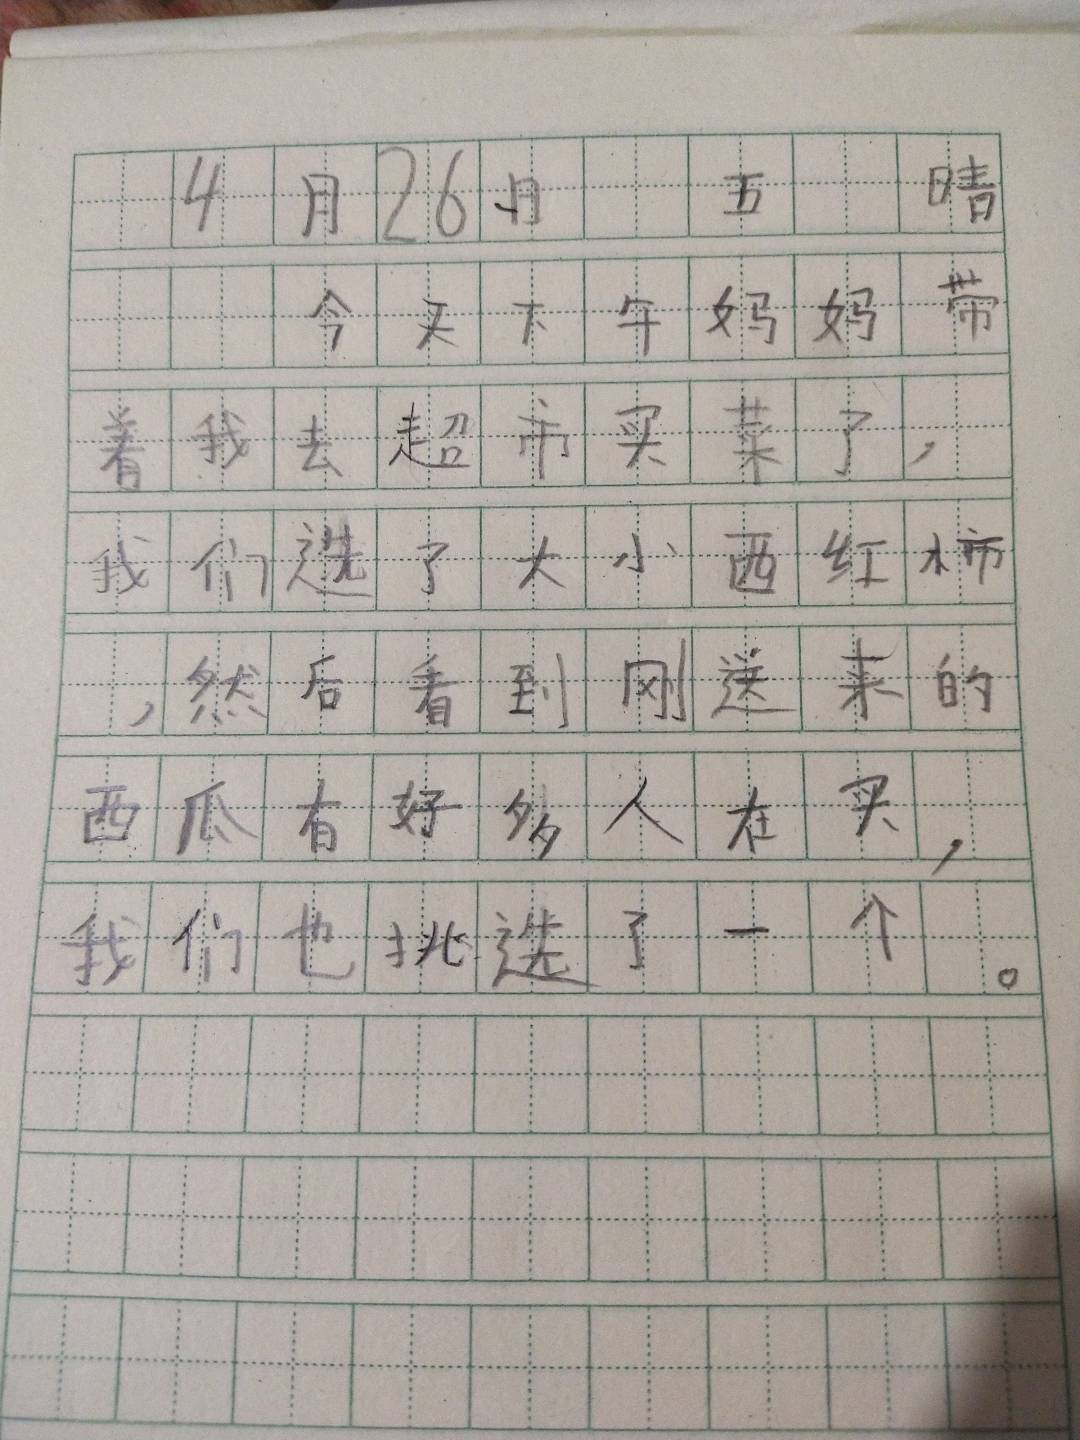 4月26日 五 晴
今天下午妈妈带
着我去超市买菜了，
我们选了大小西红柿
，然后看到刚送来的
西瓜有好多人在买，
我们也挑选了一个。